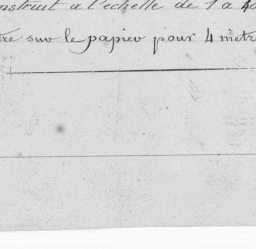 construit a l'echelle de 1 a 40
tre sur le papier pour 4 metre